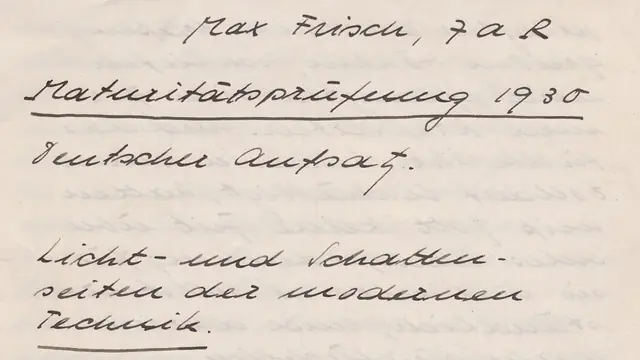 Max Frisch, 7 a R
Maturitätsprüfung 1930
Deutscher Aufsatz.
Licht- und Schatten-
seiten der modernen
Technik.